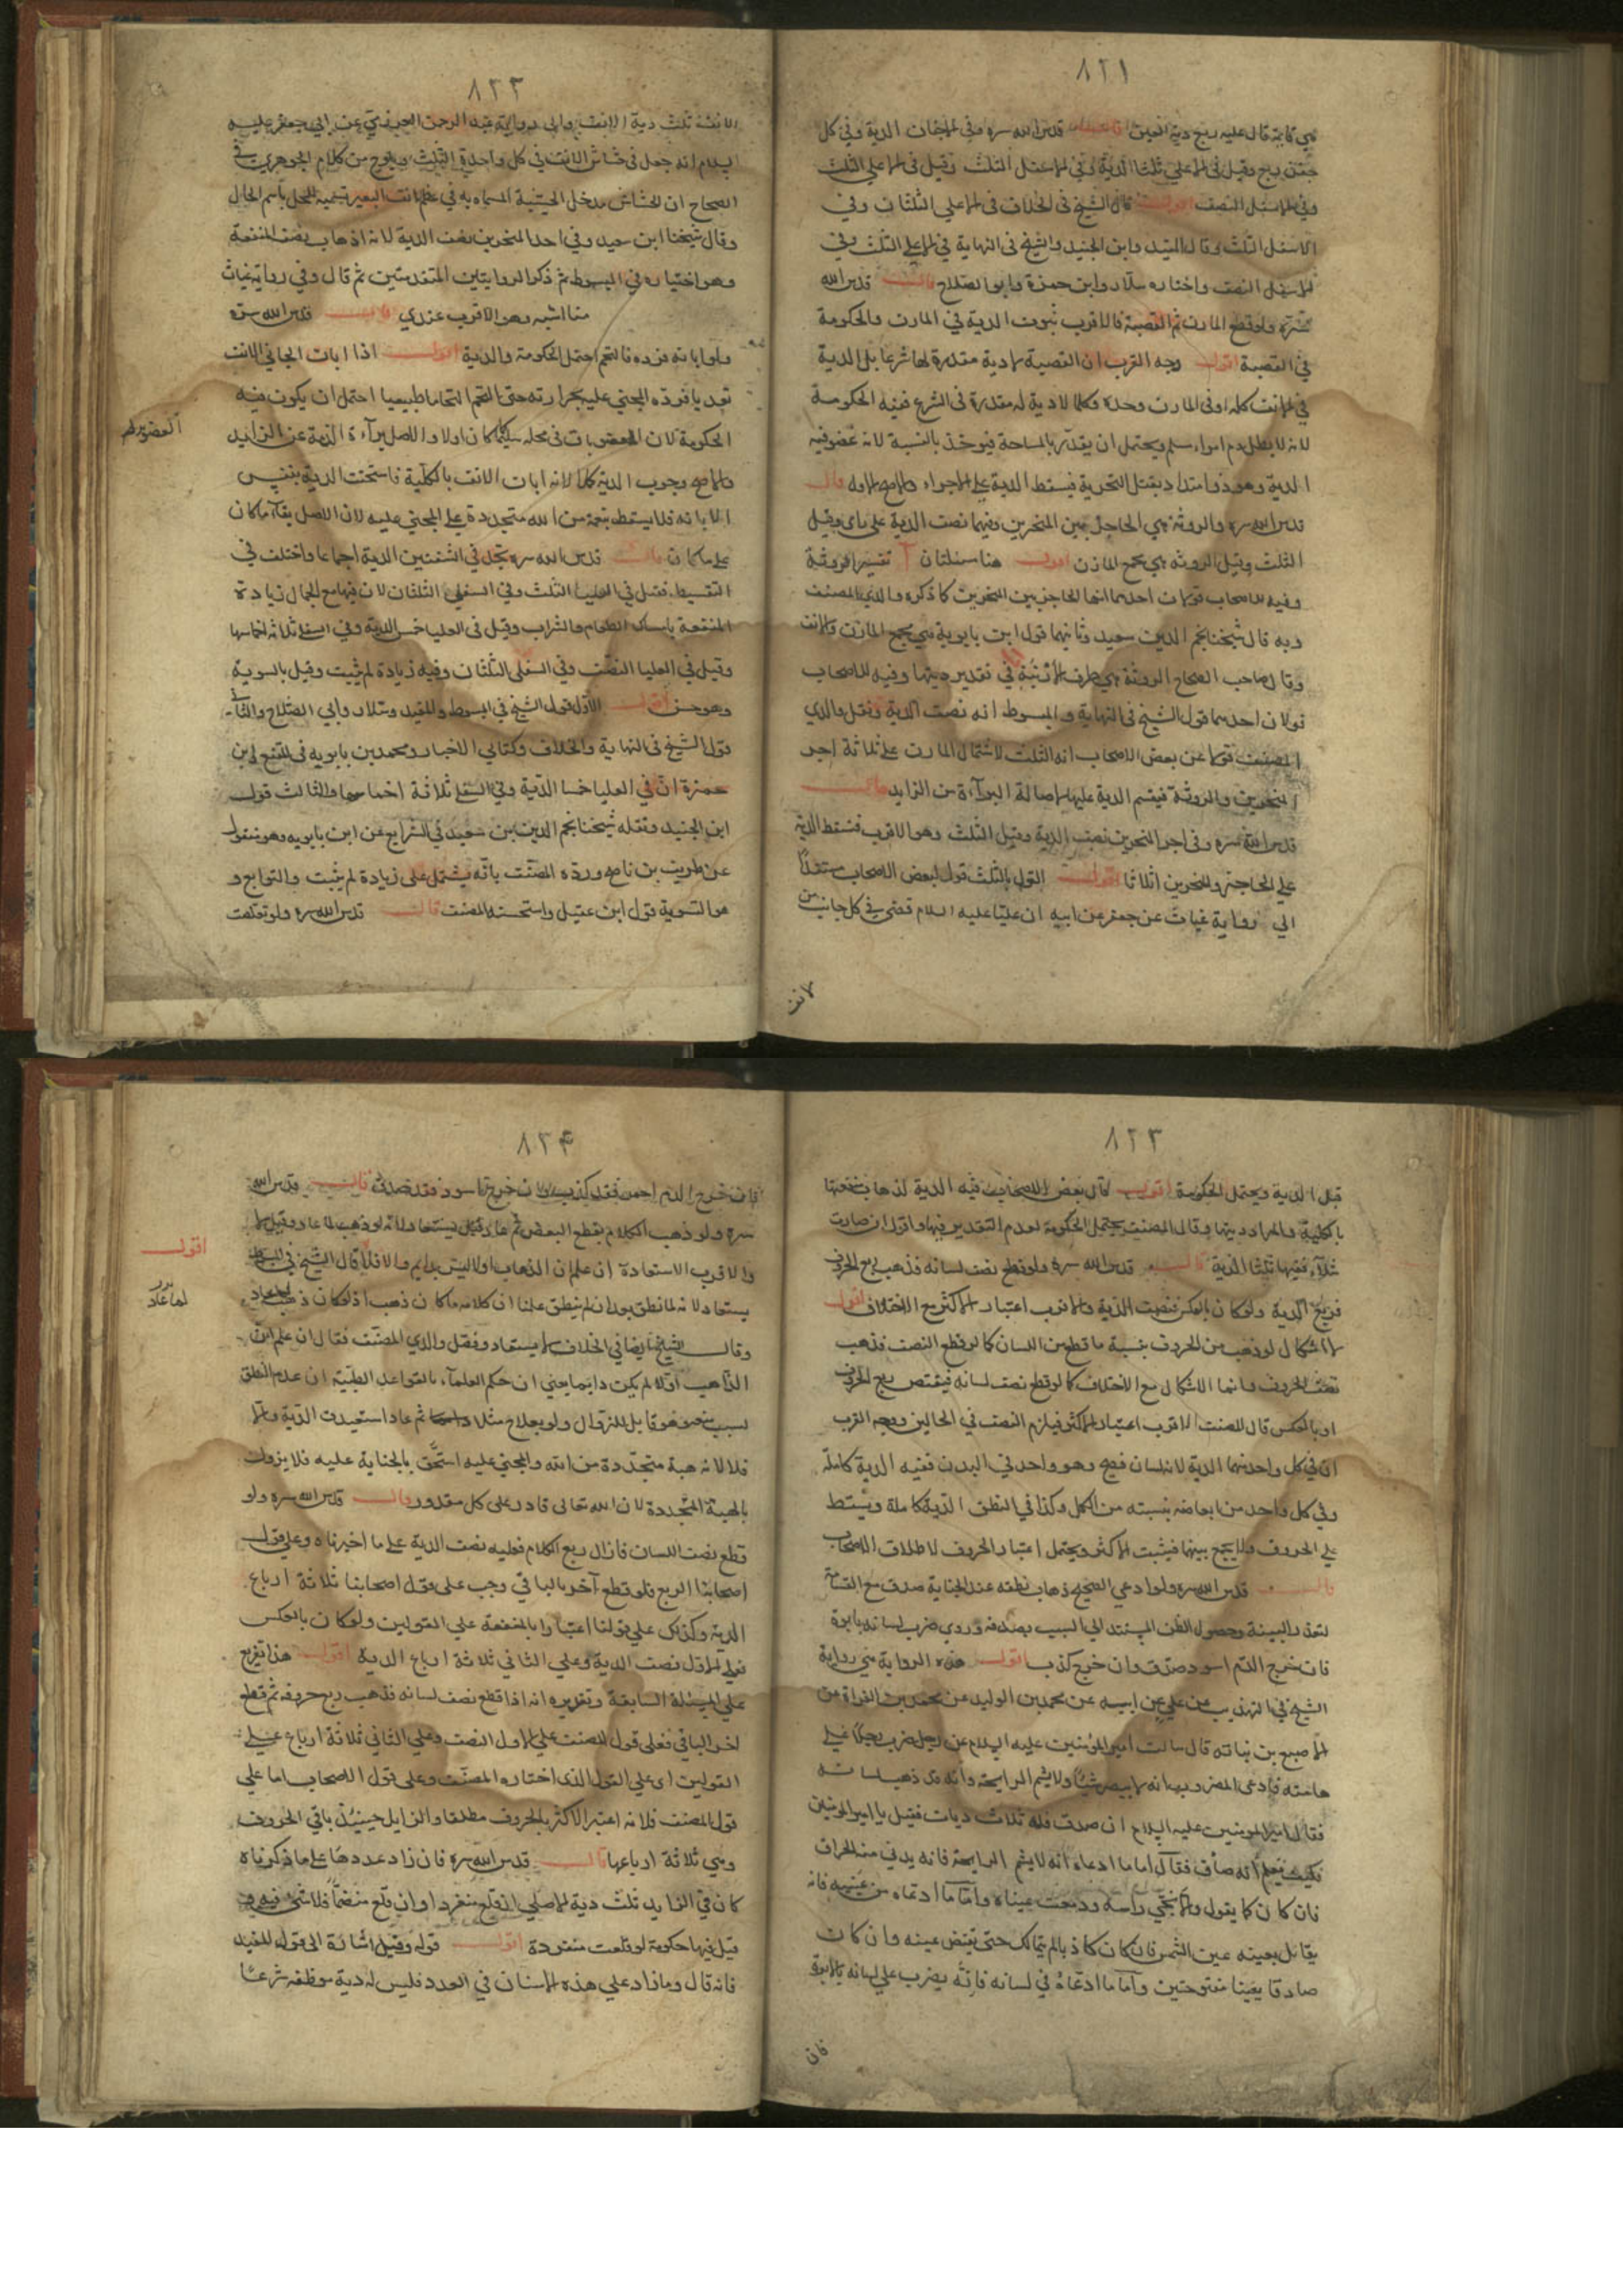 ٨٢١
هي قائمة قال عليه ربع دية العين قدس الله سره وفى الاجفان الدية وفي كل
جفن ربع وقيل فى الاعلى ثلثا الدية وفي الاسفل الثلث وقيل فى الاعلى الثلث
وفي الاسفل النصف اقول قال الشيخ فى الخلاف فى الاعلى الثلثان وفي
الاسفل الثلث وقال المفيد وابن الجنيد والشيخ فى النهاية في الاعلى الثلث وفي
الاسفل النصف واختاره سلار وابن حمزة وابو الصلاح قال قدس الله
سره ولو قطع المارن ثم القصبة فالاقرب ثبوت الدية في المارن والحكومة
في القصبة اقول وجه القرب ان القصبة لا دية مقدرة لها شرعا بل الدية
في الانف كله او فى المارن وحده وكلما لا دية له مقدرة فى الشرع ففيه الحكومة
لانه لا يطل دم امرء مسلم ويحتمل ان يقدر بالمساحة فيوخذ بالنسبة لانه عضو فيه
الدية وهو ذو امتداد يقبل التجزية فيسقط الدية على الاجزاء والاصح الاول قال
قدس الله سره والروثة هي الحاجز بين المنخرين وفيها نصف الدية على راى وقيل
الثلث وقيل الروثة هي مجمع المارن اقول هنا مسئلتان آ تفسير الروثة
وفيه للاصحاب قولان احدهما انها الحاجز بين المنخرين كما ذكره والدي المصنف
وبه قال شيخنا نجم الدين سعيد وثانيهما قول ابن بابويه هي مجمع المارن والانف
وقال صاحب الصحاح الروثة هي طرف الارنبة في تقدير ديتها وفيه للاصحاب
قولان احدهما قول الشيخ فى النهاية والمبسوط انه نصف الدية ونقل والدي
المصنف قولا عن بعض الاصحاب انه الثلث لاشتمال المارن على ثلاثة اجز
المنخرين والروثة فيقسم الدية عليها لاصالة البراءة من الزايد قال
قدس الله سره وفى احد المنخرين نصف الدية وقيل الثلث وهو الاقرب فتسقط الدية
على الحاجز والمنخرين اثلاثا اقول القول بالثلث قول لبعض الاصحاب مستندا
الى رواية غياث عن جعفر عن ابيه ان عليا عليه السلام قضى في كل جانب من
الانف
٨٢٢
الانف ثلث دية الانف والى رواية عبد الرحمن العرزمي عن ابي جعفر عليه
السلام انه جعل فى خشاش الانف في كل واحدة الثلث ويلوح من كلام الجوهري في
الصحاح ان الخشاش مدخل الخشبة المسماه به في عظم انف البعير تسمية للمحل باسم الحال
وقال شيخنا ابن سعيد وفي احد المنخرين نصف الدية لانه اذهاب نصف المنفعة
وهو اختياره في المبسوط ثم ذكر الروايتين المتقدمتين ثم قال وفي رواية غياث
هنا اشبه وهو الاقرب عندي قال قدس الله سره
ولو ابانه فرده فالتحم احتمل الحكومة والدية اقول اذا ابان الجاني الانف
تعديا فرده المجني عليه بحرارته حتى التحم التحاما طبيعيا احتمل ان يكون فيه
الحكومة لان العضو بات فى محله سليما كما كان اولا والاصل براءة الذمة عن الزايد
والاصح وجوب الدية كلها لانه ابان الانف بالكلية فاستحقت الدية بنفس
الابانة فلا يسقط بنعمة من الله متجددة على المجني عليه لان الاصل بقاء ما كان
على ما كان قال قدس الله سره يجل في الشفتين الدية اجماعا واختلف في
التقسيط فقيل في العليا الثلث وفي السفلى الثلثان لان فيها مع الجمال زيادة
المنفعة بامساك الطعام والشراب وقيل فى العليا خمسا الدية وفى السفلى ثلاثة اخماسها
وقيل في العليا النصف وفي السفلى الثلثان وفيه زيادة لم يثبت وقيل بالسوية
وهو حسن اقول الاول قول الشيخ في المبسوط والمفيد وسلار وابي الصلاح والثاني
قول الشيخ فى النهاية والخلاف وكتابي الاخبار ومحمد بن بابويه فى المقنع وابن
حمزة ان في العليا خمسا الدية وفي السفلى ثلاثة اخماسها والثالث قول
ابن الجنيد ونقله شيخنا نجم الدين بن سعيد في الشرايع عن ابن بابويه وهو منقول
عن ظريف بن ناصح ورده المصنف بانه يشتمل على زيادة لم يثبت والرابع و
هو التسوية قول ابن عقيل واستحسنه المصنف قال قدس الله سره ولو تقلصت
٨٢٣
قيل الدية ويحتمل الحكومة اقول قال بعض الاصحاب فيه الدية لذهاب منفعتها
بالكلية والمراد ديتها وقال المصنف يحتمل الحكومة لعدم التقدير فيها واقول ان صارت
شلاء ففيها ثلثا الدية قال قدس الله سره ولو قطع نصف لسانه فذهب ربع الحروف
فربع الدية ولو كان بالعكس فنصف الدية والاقرب اعتبار الاكثر مع الاختلاف اقول
لا اشكال لو ذهب من الحروف بنسبة ما قطع من اللسان كما لو قطع النصف فذهب
نصف الحروف وانما الاشكال مع الاختلاف كما لو قطع نصف لسانه فينقص ربع الحروف
او بالعكس قال المصنف الاقرب اعتبار الاكثر فيلزم النصف في الحالين ووجه القرب
ان في كل واحد منهما الدية لان اللسان فيه وهو واحد في البدن ففيه الدية كاملة
وفي كل واحد من ابعاضه بنسبته من الكل وكذا في النطق الدية كاملة ويسقط
على الحروف ولا يجمع بينهما فيثبت الاكثر ويحتمل اعتبار الحروف لاطلاق الاصحاب
قال قدس الله سره ولو ادعى الصحيح ذهاب نطقه عند الجناية صدق مع القسامة
لتعذر البينة وحصول الظن المستند الى السبب بصدقه وروي ضرب لسانه بابرة
فان خرج الدم اسود صدق وان خرج كذب اقول هذه الرواية هي رواية
الشيخ في التهذيب عن علي عن ابيه عن محمد بن الوليد عن محمد بن الفرات عن
الاصبغ بن نباته قال سالت امير المؤمنين عليه السلام عن رجل ضرب رجلا على
هامته فادعى المضروب انه لا يبصر شيئا ولا يشم الرايحة وانه قد ذهب لسانه
فقال امير المومنين عليه السلام ان صدق فله ثلاث ديات فقيل يا امير المومنين
فكيف نعلم انه صادق فقال اما ما ادعاه انه لا يشم الرايحة فانه يدنى منه الحراق
فان كان كما يقول والا نحي راسه ودمعت عيناه واما ما ادعاه من عينيه فانه
يقابل بعينه عين الشمس فان كان كاذبا لم يتمالك حتى يغمض عينه وان كان
صادقا بقينا مفتوحتين واما ما ادعاه في لسانه فانه يضرب على لسانه بالابرة
فان
٨٢۴
فان خرج الدم احمر فقد كذب وان خرج اسود فقد صدق قال قدس الله
سره ولو ذهب الكلام بقطع البعض ثم عاد قيل يستعاد لانه لو ذهب لما عاد وقيل لا
والاقرب الاستعادة ان علم ان الذهاب اولا ليس بدايم والا فلا قال الشيخ في المبسوط
اقول
يستعاد لانه لما نطق بعد ان لم ينطق علمنا ان كلامه ما كان ذهب اذ لو كان ذهب لما عاد
وقال الشيخ ايضا في الخلاف لا يستعاد وفصل والدي المصنف فقال ان علم ان
الذاهب اولا لم يكن دايما يعني ان حكم العلماء بالقواعد الطبية ان عدم النطق
لسبب هو قابل للزوال ولو بعلاج مثلا ثم عاد استعيدت الدية والا
فلا لانه هبة متجددة من الله والمجني عليه استحق بالجناية عليه فلا يزول
بالهبة المتجددة لان الله تعالى قادر على كل مقدور قال قدس الله سره ولو
قطع نصف اللسان فازال ربع الكلام فعليه نصف الدية على ما اخبرناه وعلى قول
اصحابنا الربع فلو قطع آخر الباقي وجب على قول اصحابنا ثلاثة ارباع
الدية وكذلك على قولنا اعتبارا بالمنفعة على القولين ولو كان بالعكس
فعلى الاول نصف الدية وعلى الثاني ثلاثة ارباع الدية اقول هذا تفريع
على المسئلة السابقة وتقريره انه اذا قطع نصف لسانه فذهب ربع حروفه ثم قطع
اخر الباقي فعلى قول المصنف على الاول النصف وعلى الثاني ثلاثة ارباع على
القولين اى على القول الذى اختاره المصنف وعلى قول الاصحاب اما على
قول المصنف فلانه اعتبر الاكثر بالحروف مطلقا والزايل حينيذ باقي الحروف
وهي ثلاثة ارباعها قال قدس الله سره فان زاد عددها على ما ذكرناه
كان في الزايد ثلث دية الاصلي ان قلع منفردا وان قلع منضما فلا شئ فيه و
قيل فيها حكومة لو قلعت منفردة اقول قوله وقيل اشارة الى قول المفيد
فانه قال وما زاد على هذه الاسنان في العدد فليس له دية موظفة شرعا